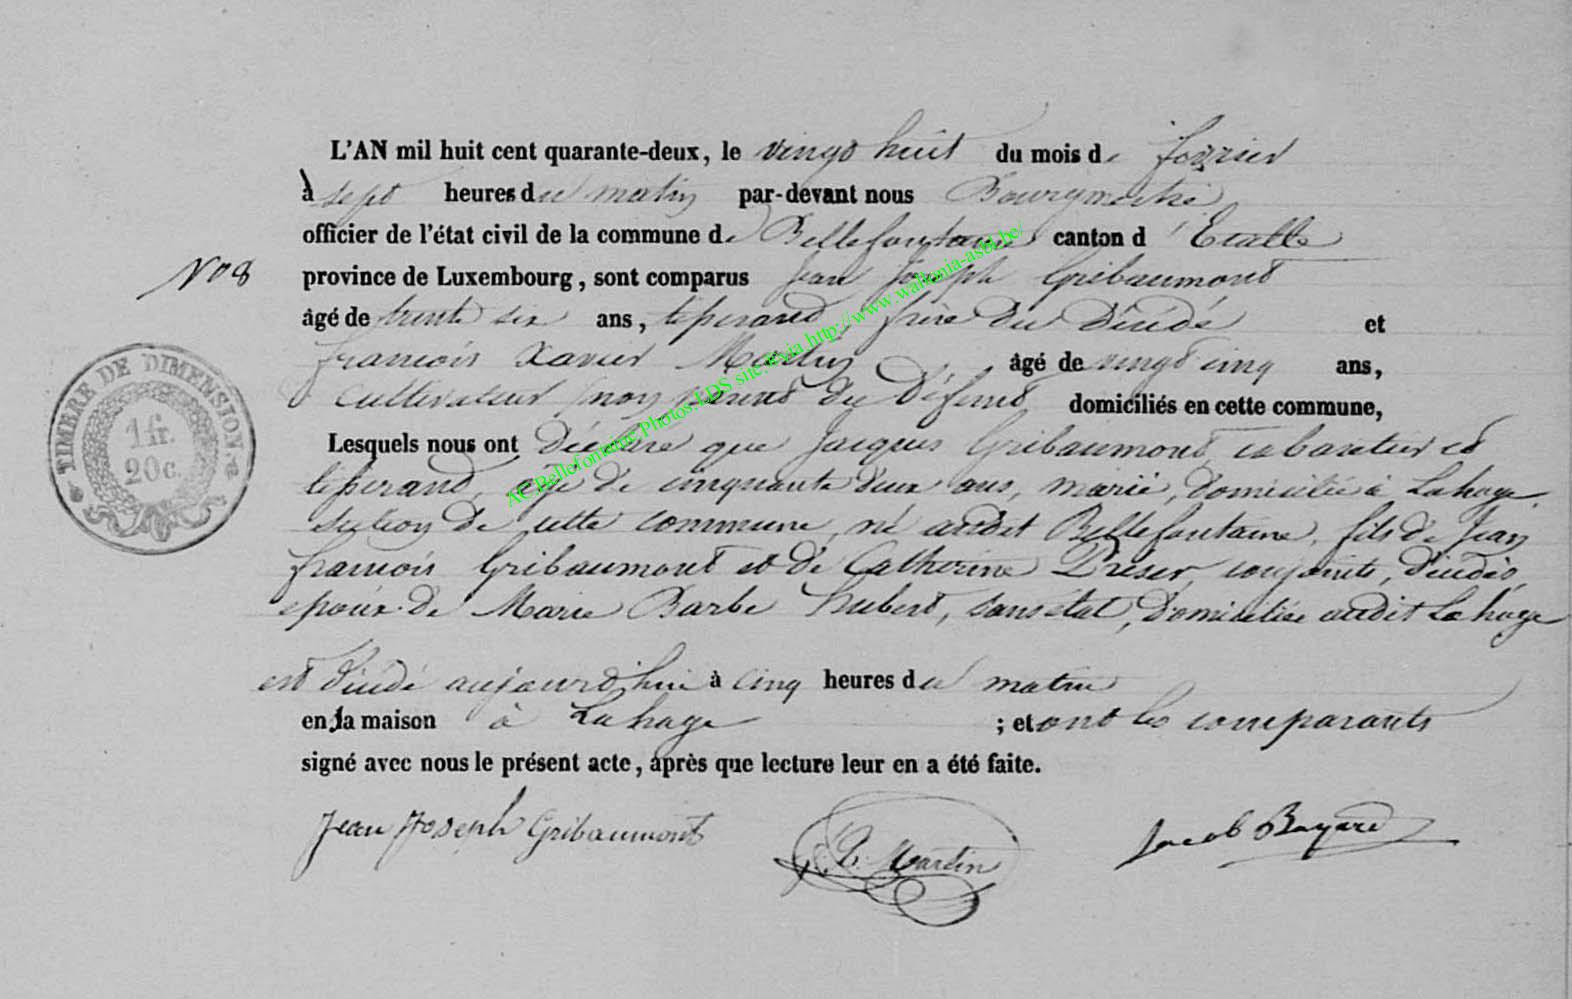 L'AN mil huit cent quarante-deux, le vingt huit du mois de fevrier
à sept heures du matin par-devant nous Bourgmestre
officier de l'état civil de la commune de Bellefontaine canton d'Etalle
N° 8
province de Luxembourg, sont comparus Jean Joseph Gribaumont
âgé de trente six ans, tisserand, frère du décédé et
françois Xavier Martin âgé de vingt cinq ans,
cultivateur non parent du Défunt domiciliés en cette commune,
Lesquels nous ont Déclaré que Jacques Gribaumont, cabaretier et
tisserand, agé de cinquante deux ans, marié, domicilié à Lahage
section de cette commune, né audit Bellefontaine, fils de Jean
françois Gribaumont et de Catherine Preser, conjoints, décédés,
epoux de Marie Barbe hubert, sans état, domiciliée audit Lahage
est décédé aujourd'hui à cinq heures du matin
en la maison à Lahage ; et ont les comparants
signé avec nous le présent acte, après que lecture leur en a été faite.
Jean Joseph Gribaumont
Martin
Jacob Bayard
TIMBRE DE DIMENSION
1 fr.
20 c.
AC Bellefontaine Photos: LDS site:&via http://www.wallonia-asbl.be/